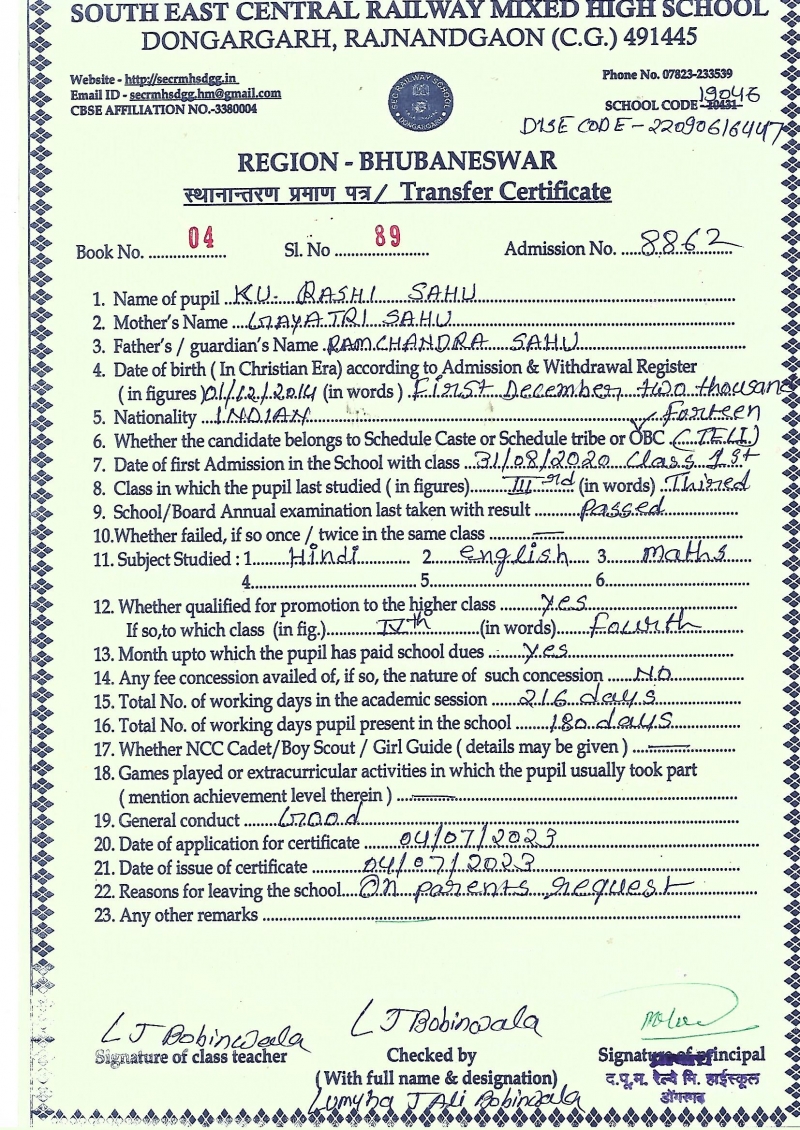 SOUTH EAST CENTRAL RAILWAY MIXED HIGH SCHOOL
DONGARGARH, RAJNANDGAON (C.G.) 491445
Website - http://secrmhsdgg.in
Email ID - secrmhsdgg.hm@gmail.com
CBSE AFFILIATION NO.-3380004
SEC RAILWAY SCHOOL
DONGARGARH
Phone No. 07823-233539
SCHOOL CODE - 20431 19046
DISE CODE - 22090616447
REGION - BHUBANESWAR
स्थानान्तरण प्रमाण पत्र / Transfer Certificate
Book No. 04 Sl. No 89 Admission No. 8862
1. Name of pupil KU. RASHI SAHU
2. Mother's Name GAYATRI SAHU
3. Father's / guardian's Name RAMCHANDRA SAHU
4. Date of birth ( In Christian Era) according to Admission & Withdrawal Register
( in figures ) 01/12/2014 (in words ) First December two thousand
forteen
5. Nationality INDIAN
6. Whether the candidate belongs to Schedule Caste or Schedule tribe or OBC (TELI)
7. Date of first Admission in the School with class 31/08/2020 Class 1st
8. Class in which the pupil last studied ( in figures) III rd (in words ) Thired
9. School/Board Annual examination last taken with result Passed
10. Whether failed, if so once / twice in the same class —
11. Subject Studied : 1 Hindi 2 english 3 maths
4 5 6
12. Whether qualified for promotion to the higher class yes
If so,to which class (in fig.) IVth (in words) fourth
13. Month upto which the pupil has paid school dues yes
14. Any fee concession availed of, if so, the nature of such concession NO
15. Total No. of working days in the academic session 216 days
16. Total No. of working days pupil present in the school 180 days
17. Whether NCC Cadet/Boy Scout / Girl Guide ( details may be given ) —
18. Games played or extracurricular activities in which the pupil usually took part
( mention achievement level therein ) —
19. General conduct Good
20. Date of application for certificate 04/07/2023
21. Date of issue of certificate 04/07/2023
22. Reasons for leaving the school On parents request
23. Any other remarks
L J Bobinwala L J Bobinwala
Signature of class teacher Checked by Signature of principal
(With full name & designation) द.पू.म. रेल्वे मि. हाईस्कूल
Lumyha J Ali Bobinwala डोंगरगढ़